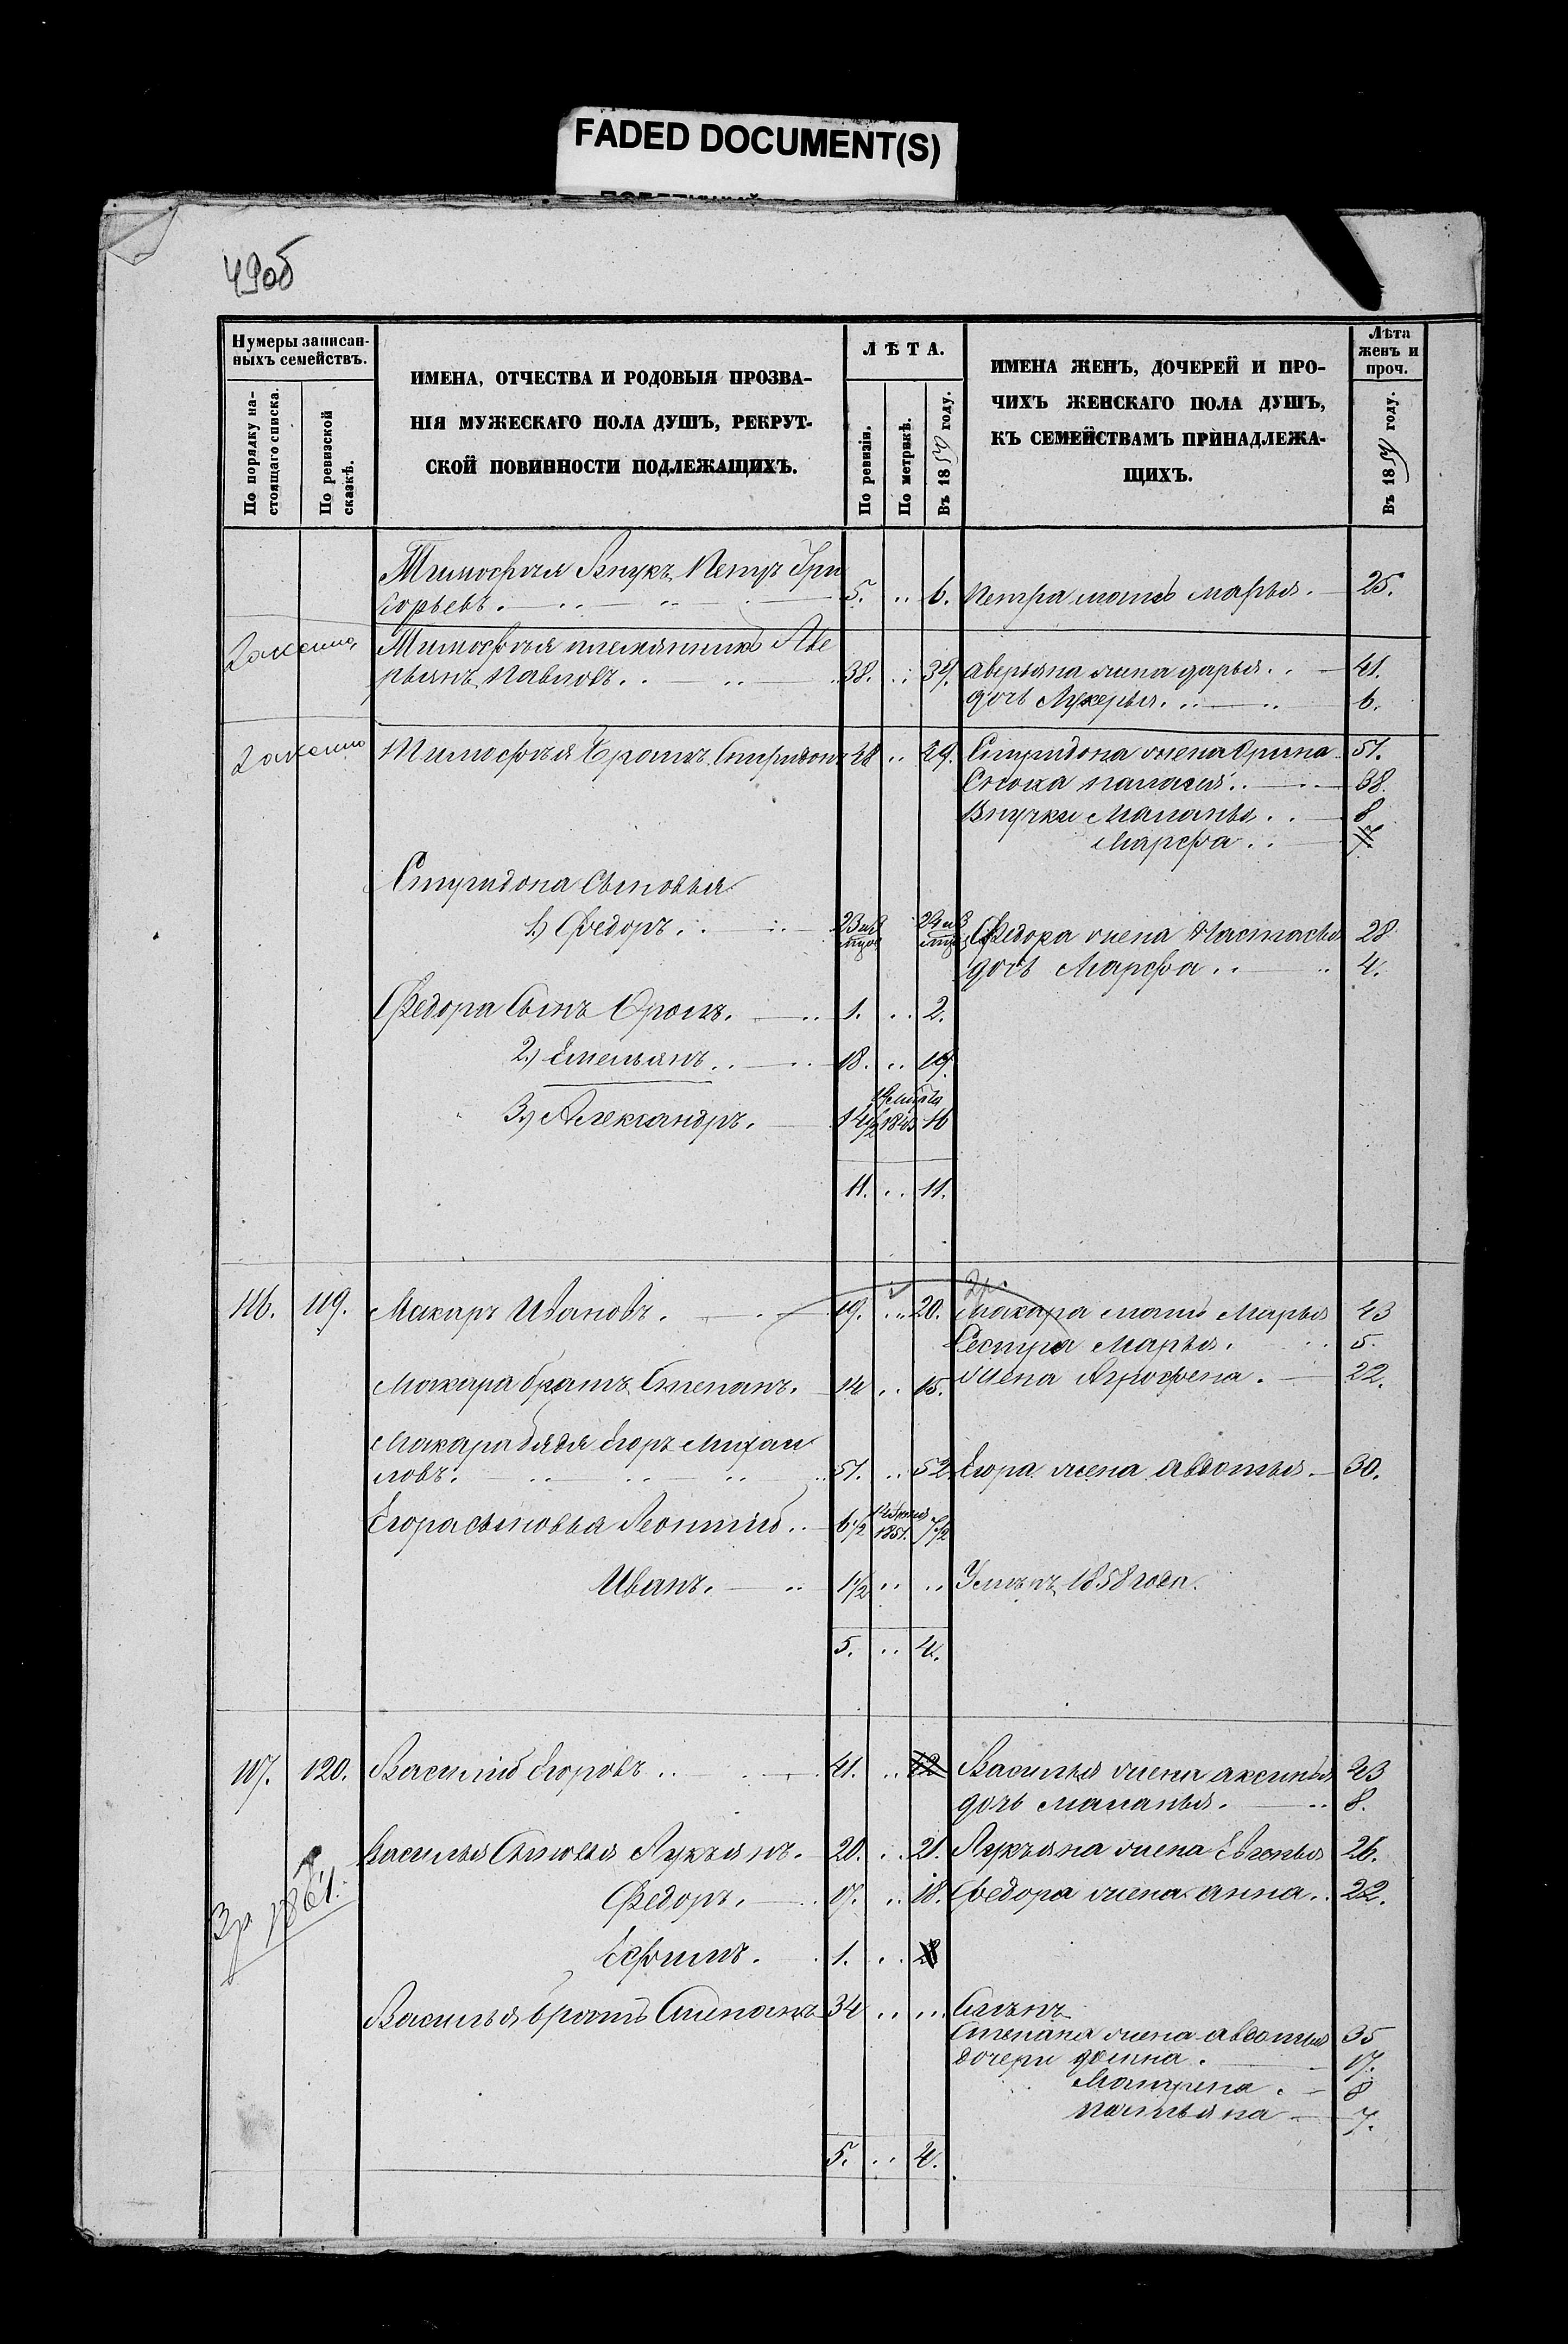 FADED DOCUMENT(S)
49об
Нумеры записан-
ныхъ семействъ.
По порядку на-
стоящаго списка.
По ревизской
сказкѣ.
ИМЕНА, ОТЧЕСТВА И РОДОВЫЯ ПРОЗВА-
НІЯ МУЖЕСКАГО ПОЛА ДУШЪ, РЕКРУТ-
СКОЙ ПОВИННОСТИ ПОДЛЕЖАЩИХЪ.
ЛѢТА.
По ревизіи.
По метрикѣ.
Въ 1859 году.
ИМЕНА ЖЕНЪ, ДОЧЕРЕЙ И ПРО-
ЧИХЪ ЖЕНСКАГО ПОЛА ДУШЪ,
КЪ СЕМЕЙСТВАМЪ ПРИНАДЛЕЖА-
ЩИХЪ.
Лѣта
женъ и
проч.
Въ 1859 году.
Тимофѣя Внукъ Петръ Гри
горьевъ. 5. .. 6. Петра мать Марья. 25.
Тимофѣя племянникъ Аве
рьянъ Павловъ. 38. .. 39. Аверьяна жена Дарья. 41.
дочь Лукерья. 6.
Тимофѣя Братъ Спиридонъ 48 .. 49. Спиридона жена Орина 51.
Сноха Палагея. 38.
Внучки Маланья. 8
Марфа. 7
Спиридона Сыновья
1.) Федоръ. 23 24 Федора жена Настасья 28
дочь Марфа. 4.
Федора Сынъ Фролъ. 1. .. 2.
2.) Емельянъ. 18. .. 19.
3.) Александръ. 14 1/2 1843 16
11. .. 11.
116. 119. Макаръ Ивановъ. 19. .. 20. Макара мать Марья 43
Сестра Марья. 5.
Макара братъ Степанъ. 14 .. 15. Жена Агрофена. 22.
Макара дядя Егоръ Михаи
ловъ. 51. .. 52 Егора жена Авдотья 30.
Егора сыновья Леонтій. 6 1/2 1851. 7 1/2
Иванъ. 1 1/2 .. .. Умеръ 1858 года.
5. .. 4.
117. 120. Василій Егоровъ. 41. .. 42 Василья жена Аксинья 43
дочь Маланья. 8.
Василья Сыновья Лукьянъ. 20. .. 21. Лукьяна жена Евгенья 26.
3р 1861.
Федоръ. 17. .. 18. Федора жена Анна. 22.
Ефимъ. 1. ..
Василья братъ Степанъ 34 .. ..
Степана жена Авдотья 35
дочери Домна. 17.
Матрена. 8
Татьяна 7.
5. .. 4.